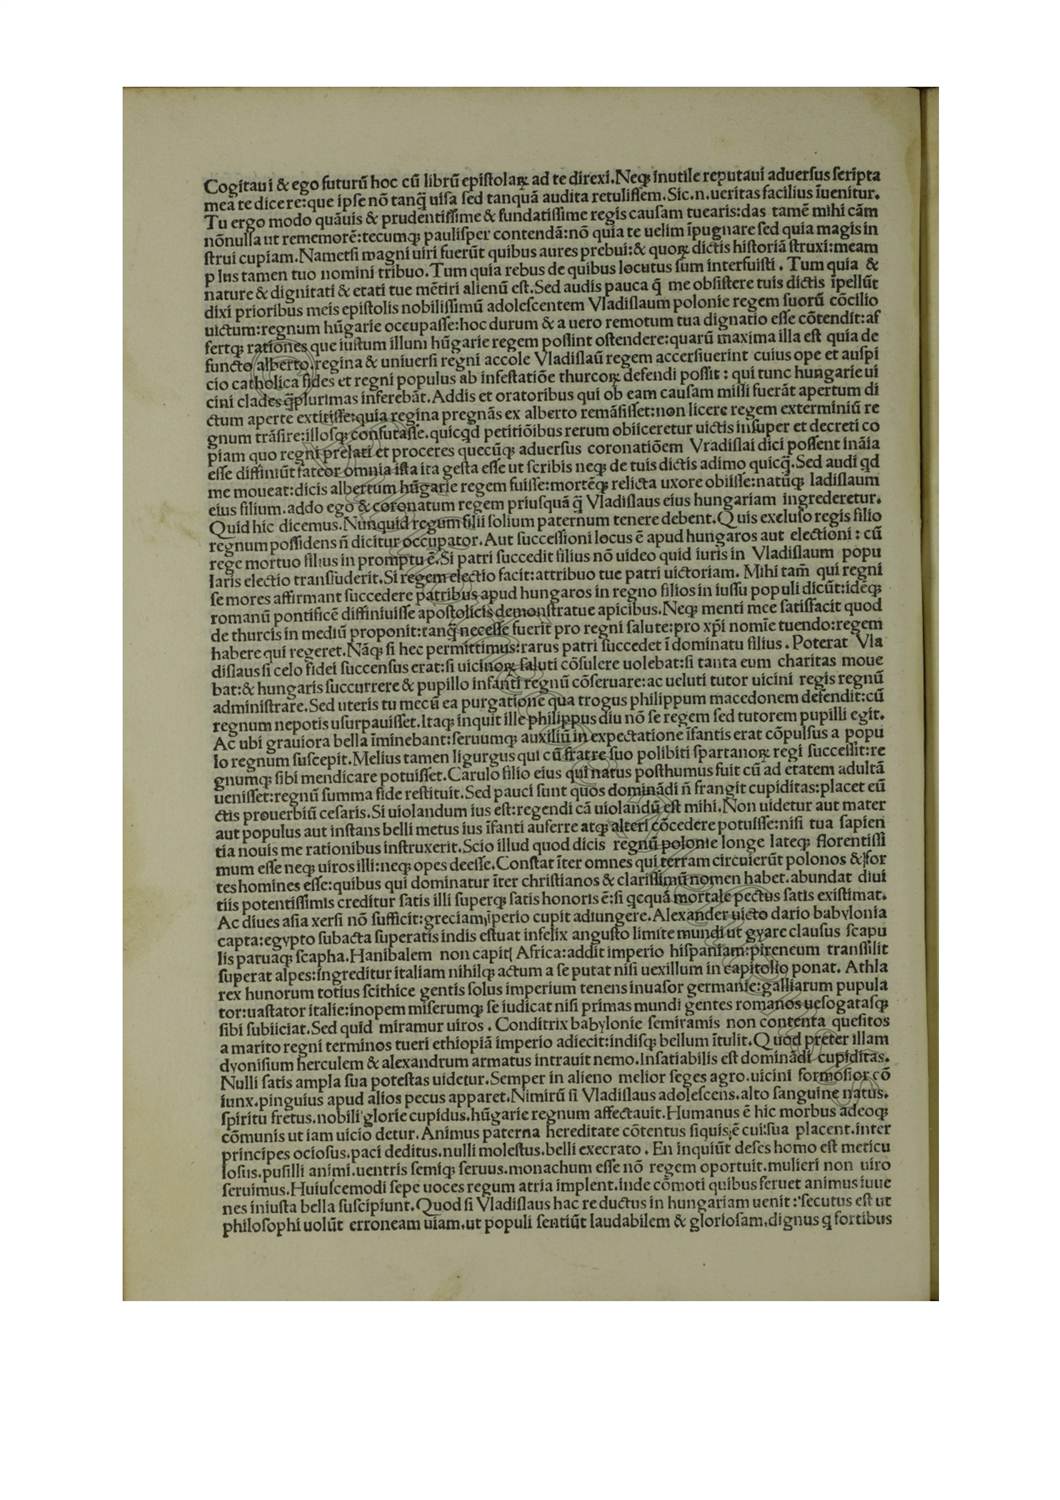 Cogitaui & ego futurũ hoc cũ librũ epiſtolaꝝ ad te direxi.Neqꝫ inutile reputaui aduerſus ſcripta
mea te dicere:que ipſe nõ tanq̃ uiſa ſed tanquã audita retuliſſem.Sic.n.ueritas facilius ĩuenitur.
Tu ergo modo quãuis & prudentiſſime & fundatiſſime regis cauſam tuearis:das tamẽ mihi cãm
nõnulla ut rememorẽ:tecumqꝫ pauliſper contendã:nõ quia te uelim ĩpugnare ſed quia magis in
ſtrui cupiam.Nametſi magni uiri fuerũt quibus aures prebui:& quoꝝ dictis hiſtoriã ſtruxi:meam
plus tamen tuo nomini tribuo.Tum quia rebus de quibus locutus ſum interfuiſti . Tum quia &
nature & dignitati & etati tue mẽtiri alienũ eſt.Sed audis pauca q̃ me obſiſtere tuis dictis ĩpellũt
dixi prioribus meis epiſtolis nobiliſſimũ adoleſcentem Vladiſlaum polonie regem ſuorũ cõcilio
uictum:regnum hũgarie occupaſſe:hoc durum & a uero remotum tua dignatio eſſe cõtendit:aſ
ſertqꝫ rationes que iuſtum illum hũgarie regem poſſint oſtendere:quarũ maxima illa eſt quia de
functo alberto.regina & uniuerſi regni accole Vladiſlaũ regem accerſiuerint cuius ope et auſpi
cio catholica fides et regni populus ab infeſtatiõe thurcoꝝ defendi poſſit : qui tunc hungarie ui
cini clades q̃plurimas inferebãt.Addis et oratoribus qui ob eam cauſam miſſi fuerãt apertum di
ctum aperte extitiſſe:quia regina pregnãs ex alberto remãſiſſet:non licere regem exterminiũ re
gnum trãſire:illoſqꝫ confutaſſe.quicqd petitiõibus rerum obiiceretur uictis inſuper et decreti co
piam quo regni prelati et proceres quecũqꝫ aduerſus coronatiõem Vradiſlai dici poſſent inãia
eſſe diffiniũt fateor omnia iſta ita geſta eſſe ut ſcribis neqꝫ de tuis dictis adimo quicq̃.Sed audi qd
me moueat:dicis albertum hũgarie regem fuiſſe:mortẽqꝫ relicta uxore obiiſſe:natũqꝫ ladiſlaum
eius filium.addo ego & coronatum regem priuſquã q̃ Vladiſlaus eius hungariam ingrederetur.
Quid hic dicemus.Nunquid regum filii ſolium paternum tenere debent.Quis excluſo regis filio
regnum poſſidens ñ dicitur occupator.Aut ſucceſſioni locus ẽ apud hungaros aut electioni : cũ
rege mortuo filius in promptu ẽ.Si patri ſuccedit filius nõ uideo quid iuris in Vladiſlaum popu
laris electio tranſſuderit.Si regem electio facit:attribuo tue patri uictoriam. Mihi tam̃ qui regni
ſe mores affirmant ſuccedere patribus apud hungaros in regno filios in iuſſu populi dicũt:ideqꝫ
romanũ pontificẽ diffiniuiſſe apoſtolicis demonſtratue apicibus.Neqꝫ menti mee ſatiſfacit quod
de thurcis in mediũ proponit:tanq̃ neceſſe fuerit pro regni ſalute:pro xp̃i nomĩe tuendo:regem
habere qui regeret.Nãqꝫ ſi hec permittimus:rarus patri ſuccedet ĩ dominatu filius . Poterat Vla
diſlaus ſi celo fidei ſuccenſus erat:ſi uicinoꝝ ſaluti cõſulere uolebat:ſi tanta eum charitas moue
bat:& hungaris ſuccurrere & pupillo infanti regnũ cõſeruare:ac ueluti tutor uicini regis regnũ
adminiſtrare.Sed uteris tu mecũ ea purgatione qua trogus philippum macedonem defendit:cũ
regnum nepotis uſurpauiſſet.Itaqꝫ inquit ille philippus diu nõ ſe regem ſed tutorem pupilli egit.
Ac ubi grauiora bella ĩminebant:ſeruumqꝫ auxiliũ in expectatione ĩfantis erat cõpulſus a popu
lo regnum ſuſcepit.Melius tamen ligurgus qui cũ fratre ſuo polibiti ſpartanoꝝ regi ſucceſſit:re
gnumqꝫ ſibi mendicare potuiſſet.Carulo filio eius qui natus poſthumus fuit cũ ad etatem adultã
ueniſſet:regnũ ſumma fide reſtituit.Sed pauci ſunt quos dominãdi ñ frangit cupiditas:placet eũ
ctis prouerbiũ ceſaris.Si uiolandum ius eſt:regendi cã uiolandũ eſt mihi.Non uidetur aut mater
aut populus aut inſtans belli metus ius ĩfanti auferre atqꝫ alteri cõcedere potuiſſe:niſi tua ſapien
tia nouis me rationibus inſtruxerit.Scio illud quod dicis regnũ polonie longe lateqꝫ florentiſſi
mum eſſe neqꝫ uiros illi:neqꝫ opes deeſſe.Conſtat ĩter omnes qui terram circuierũt polonos & for
tes homines eſſe:quibus qui dominatur ĩter chriſtianos & clariſſimũ nomen habet.abundat diui
tiis potentiſſimis creditur ſatis illi ſuperqꝫ ſatis honoris ẽ:ſi qcquã mortale pectus ſatis exiſtimat.
Ac diues aſia xerſi nõ ſufficit:greciam ĩperio cupit adiungere.Alexander uicto dario babylonia
capta:egypto ſubacta ſuperatis indis eſtuat infelix anguſto limite mundi ut gyare clauſus ſcapu
lis paruaqꝫ ſcapha.Hanibalem non capit Africa:addit imperio hiſpaniam:pireneum tranſſilit
ſuperat alpes:ingreditur italiam nihilqꝫ actum a ſe putat niſi uexillum in capitolio ponat. Athla
rex hunorum totius ſcithice gentis ſolus imperium tenens inuaſor germanie:galliarum pupula
tor:uaſtator italie:inopem miſerumqꝫ ſe iudicat niſi primas mundi gentes romanos ueſogataſqꝫ
ſibi ſubiiciat.Sed quid miramur uiros . Conditrix babylonie ſemiramis non contenta queſitos
a marito regni terminos tueri ethiopiã imperio adiecit:indiſqꝫ bellum ĩtulit.Quod preter illam
dyoniſium herculem & alexandrum armatus intrauit nemo.Inſatiabilis eſt dominãdi cupiditas.
Nulli ſatis ampla ſua poteſtas uidetur.Semper in alieno melior ſeges agro.uicini formoſior cõ
iunx.pinguius apud alios pecus apparet.Nimirũ ſi Vladiſlaus adoleſcens.alto ſanguine natus.
ſpiritu fretus.nobili glorie cupidus.hũgarie regnum affectauit.Humanus ẽ hic morbus adeoqꝫ
cõmunis ut iam uicio detur.Animus paterna hereditate cõtentus ſiquis ẽ cui:ſua placent.inter
principes ocioſus.paci deditus.nulli moleſtus.belli execrato . En inquiũt deſes homo eſt meticu
loſus.puſilli animi.uentris ſemiqꝫ ſeruus.monachum eſſe nõ regem oportuit.mulieri non uiro
ſeruimus.Huiuſcemodi ſepe uoces regum atria implent.inde cõmoti quibus feruet animus iuue
nes iniuſta bella ſuſcipiunt.Quod ſi Vladiſlaus hac re ductus in hungariam uenit :ſecutus eſt ut
philoſophi uolũt erroneam uiam.ut populi ſentiũt laudabilem & glorioſam,dignus q fortibus